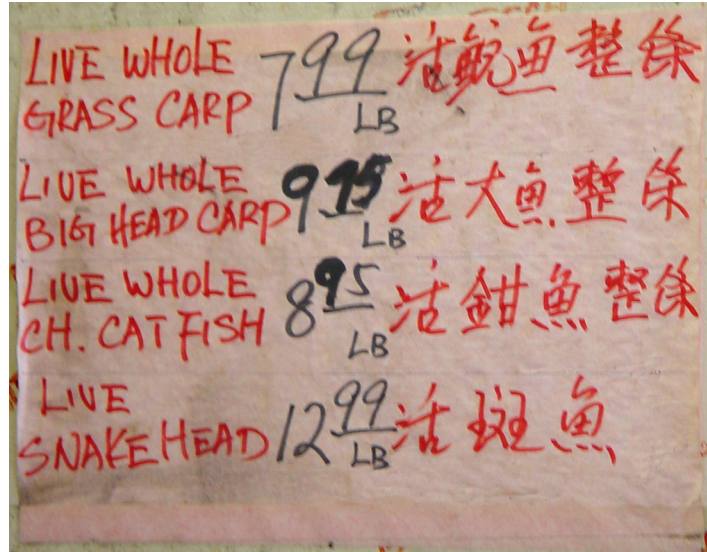 LIVE WHOLE
GRASS CARP 7.99 LB 活鯇魚整条
LIVE WHOLE
BIG HEAD CARP 9.95 LB 活大魚整条
LIVE WHOLE
CH. CAT FISH 8.95 LB 活鉗魚整条
LIVE
SNAKE HEAD 12.99 LB 活斑魚